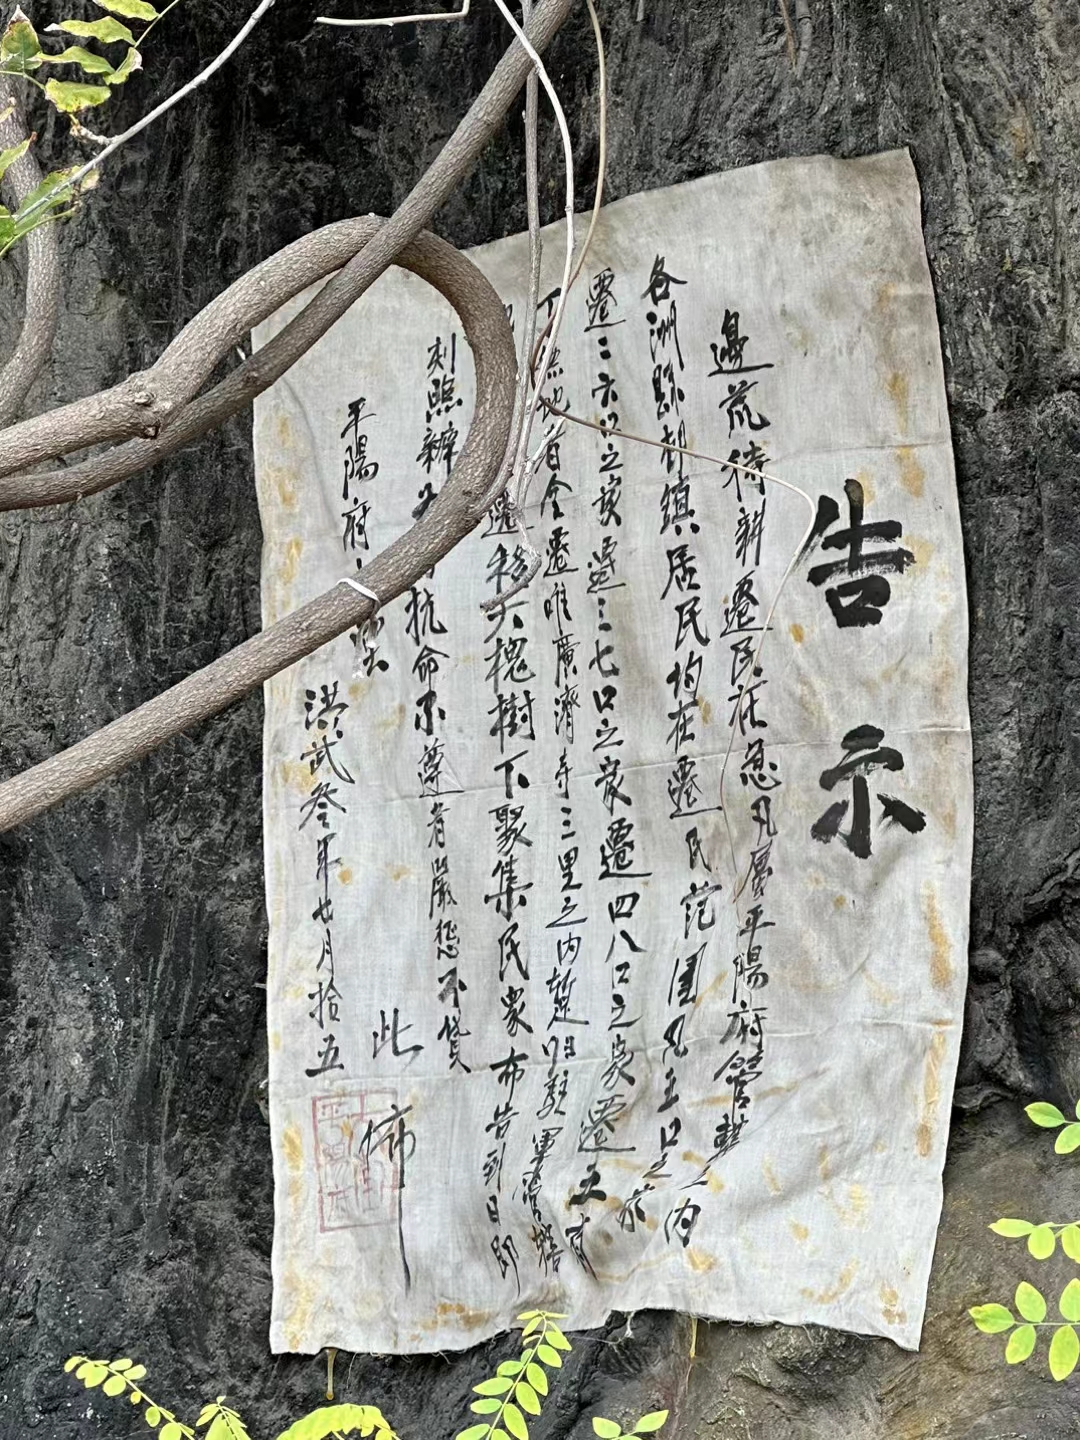 告示
邊荒待耕遷民在急凡屬平陽府管轄之內
各洲縣村鎮居民均在遷民范圍凡五口之家
遷二六口之家遷三七口之家遷四八口之家遷五有
丁無地者全遷唯廣濟寺三里之内暫歸駐軍管轄
遷移大槐樹下聚集民衆布告到日即
刻照辦 抗命不遵者嚴惩不貸
此佈
平陽府
洪武叁年廿月拾五
平陽府印